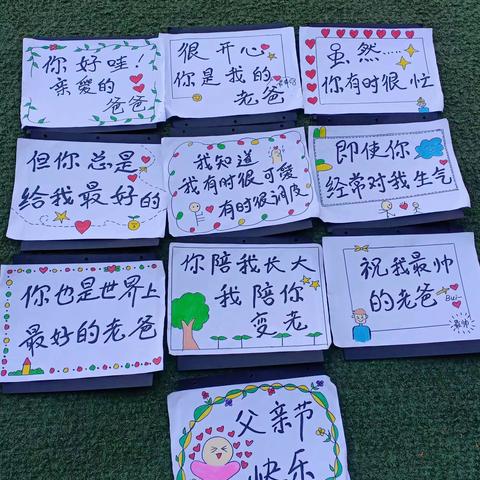 你好哇!
亲爱的
爸爸
很开心
你是我的
老爸
虽然……
你有时很忙
但你总是
给我最好的
我知道
我有时很可爱
有时很调皮
即使你
经常对我生气
你也是世界上
最好的老爸
你陪我长大
我陪你
变老
祝我最帅
的老爸
父亲节
快乐